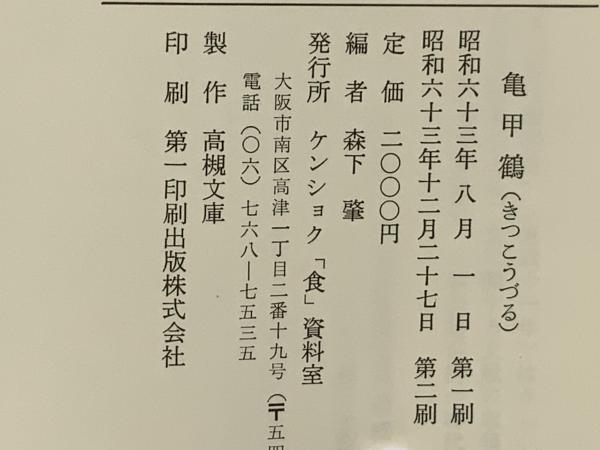 亀甲鶴（きつこうづる）
昭和六十三年 八月 一 日 第一刷
昭和六十三年十二月二十七日 第二刷
定 価 二〇〇〇円
編 者 森下 肇
発行所 ケンショク「食」資料室
大阪市南区高津一丁目二番十九号（〒五四
電話（〇六）七六八―七五三五
製 作 高槻文庫
印 刷 第一印刷出版株式会社